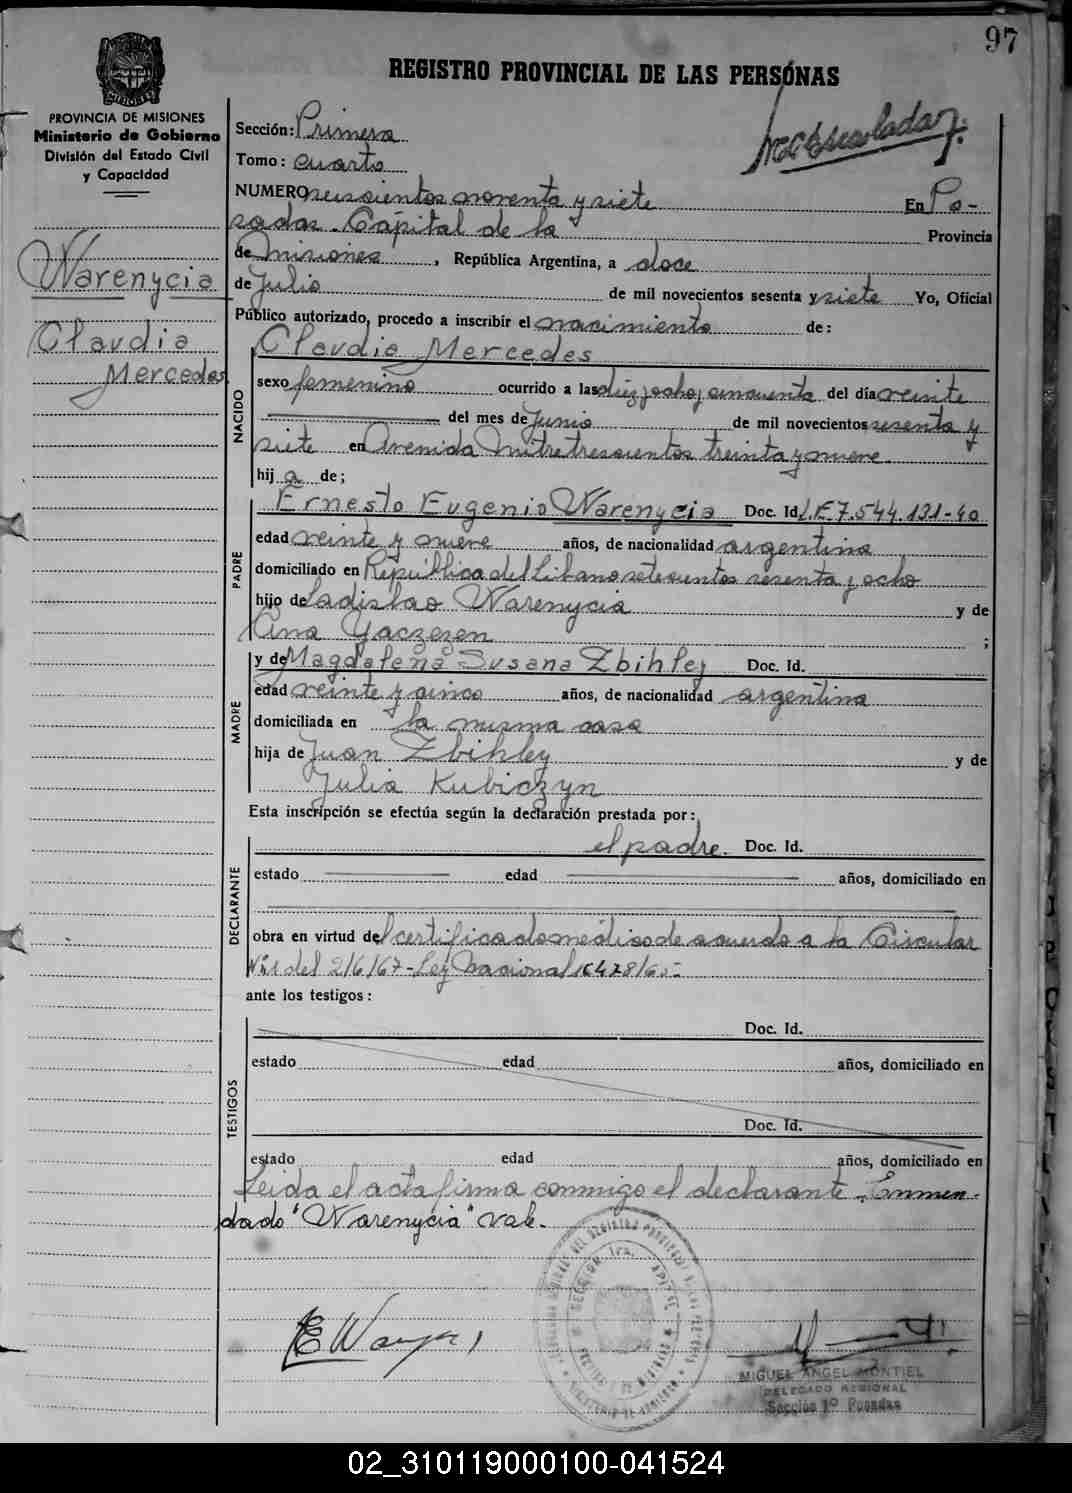 97
PROVINCIA DE MISIONES
Ministerio de Gobierno
División del Estado Civil
y Capacidad
Warenycia
Claudia
Mercedes
REGISTRO PROVINCIAL DE LAS PERSONAS
Sección: Primera
Tomo: cuarto
NUMERO seiscientos noventa y siete En Po-
sadas. Capital de la Provincia
de Misiones, República Argentina, a doce
de Julio de mil novecientos sesenta y siete Yo, Oficial
Público autorizado, procedo a inscribir el nacimiento de:
Claudia Mercedes
NACIDO
sexo femenino ocurrido a las diez y ocho y cincuenta del día veinte
del mes de Junio de mil novecientos sesenta y
siete en Avenida Mitre trescientos treinta y nueve
hij a de;
PADRE
Ernesto Eugenio Warenycia Doc. Id. L.E. 7.544.131-40
edad veinte y nueve años, de nacionalidad argentina
domiciliado en República del Libano setecientos sesenta y ocho
hijo de Ladislao Warenycia y de
Ana Yaczezen ;
MADRE
y de Magdalena Susana Zbihley Doc. Id.
edad veinte y cinco años, de nacionalidad argentina
domiciliada en la misma casa
hija de Juan Zbihley y de
Julia Kubiczyn
Esta inscripción se efectúa según la declaración prestada por:
DECLARANTE
el padre. Doc. Id.
estado edad años, domiciliado en
obra en virtud del certificado médico de acuerdo a la Circular
del 2/6/67- Ley Nacional
ante los testigos:
TESTIGOS
Doc. Id.
estado edad años, domiciliado en
Doc. Id.
estado edad años, domiciliado en
Leida el acta firma conmigo el declarante. Enmen-
dado "Warenycia" vale.
MIGUEL ANGEL MONTIEL
DELEGADO REGIONAL
Sección 1º Posadas
02_310119000100-041524